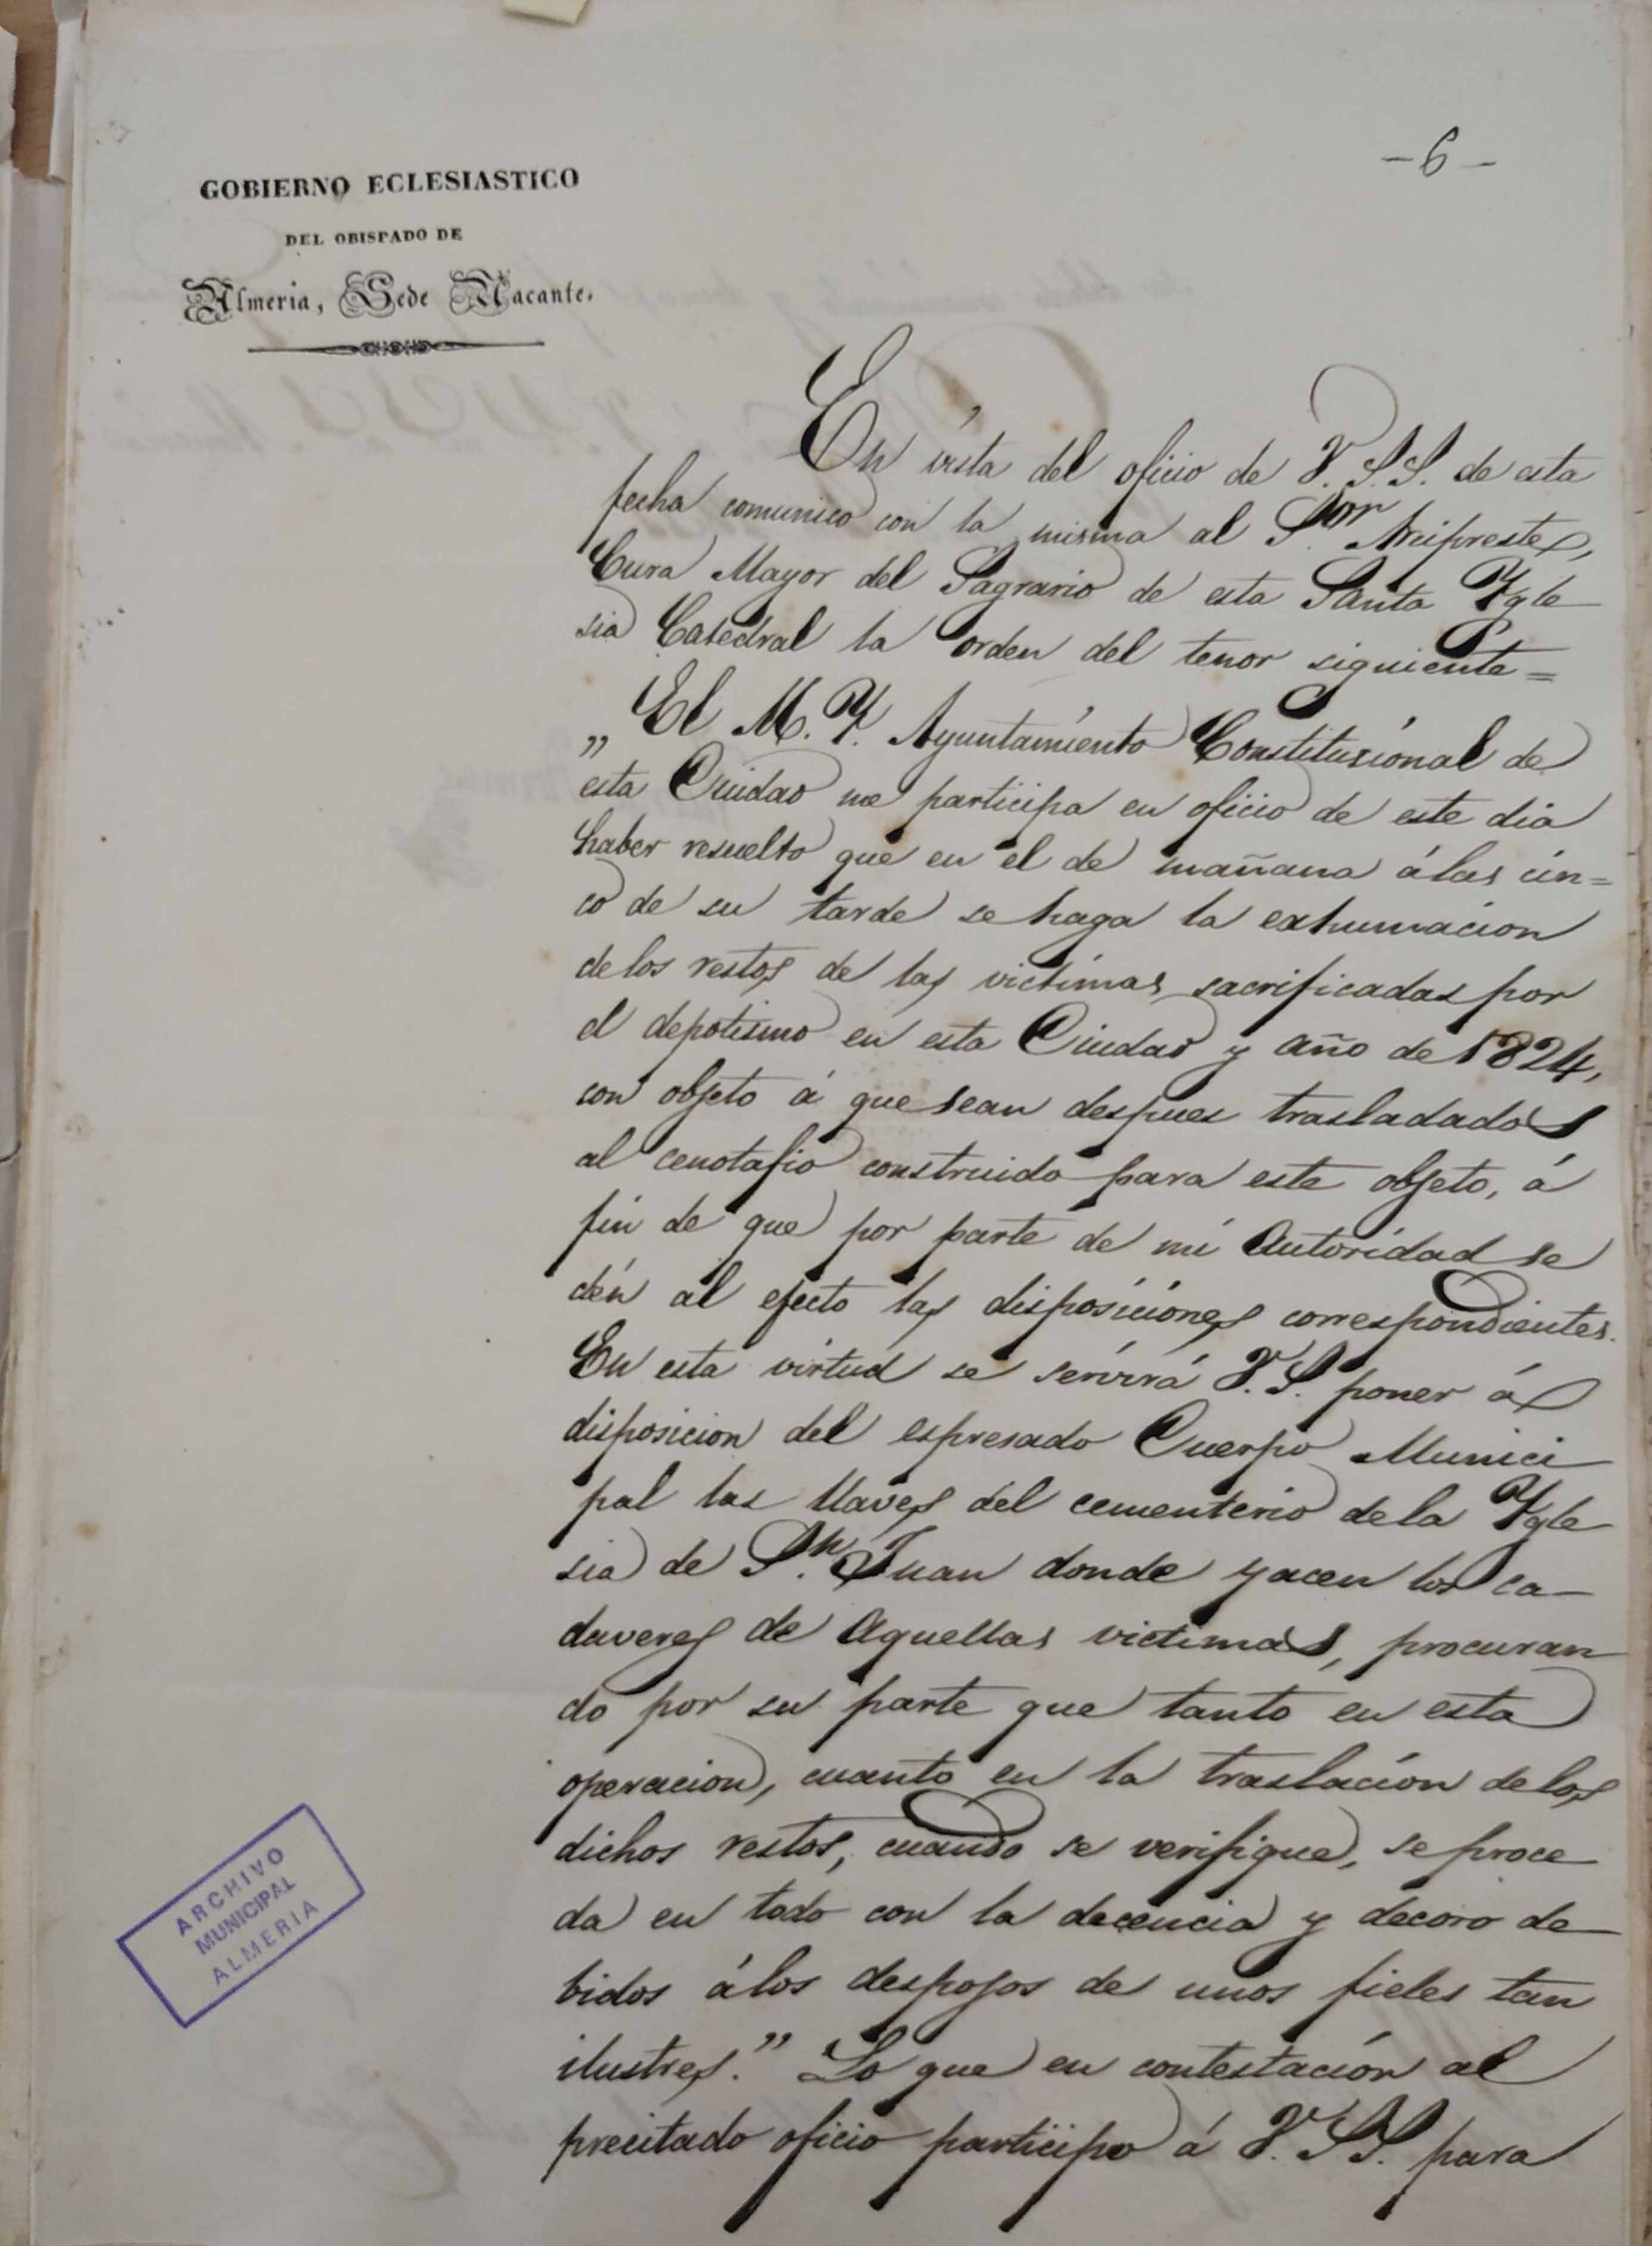 - 6 -
GOBIERNO ECLESIASTICO
DEL OBISPADO DE
Almeria, Sede Vacante.
En vista del oficio de V. S.S. de esta
fecha comunico con la misma al S.or Arcipreste,
Cura Mayor del Sagrario de esta Santa Ygle
sia Catedral la orden del tenor siguiente =
„ El M. Y. Ayuntamiento Constitucional de
esta Ciudad me participa en oficio de este dia
haber resuelto que en el de mañana á las cin=
co de su tarde se haga la exhumacion
de los restos de las victimas sacrificadas por
el depotismo en esta Ciudad y año de 1824,
con objeto á que sean despues trasladados
al cenotafio construido para este objeto, á
fin de que por parte de mi Autoridad se
dén al efecto las disposiciones correspondientes.
En esta virtud se servirá V. S. poner á
disposicion del espresado Cuerpo Munici
pal las llaves del cementerio de la Ygle
sia de S.n Juan donde yacen los ca
daveres de aquellas victimas, procuran
do por su parte que tanto en esta
operacion, cuanto en la traslacion de los
dichos restos, cuando se verifique, se proce
da en todo con la decencia y decoro de
bidos á los despojos de unos fieles tan
ilustres." Lo que en contestacion al
precitado oficio participo á V. S.S. para
ARCHIVO
MUNICIPAL
ALMERIA